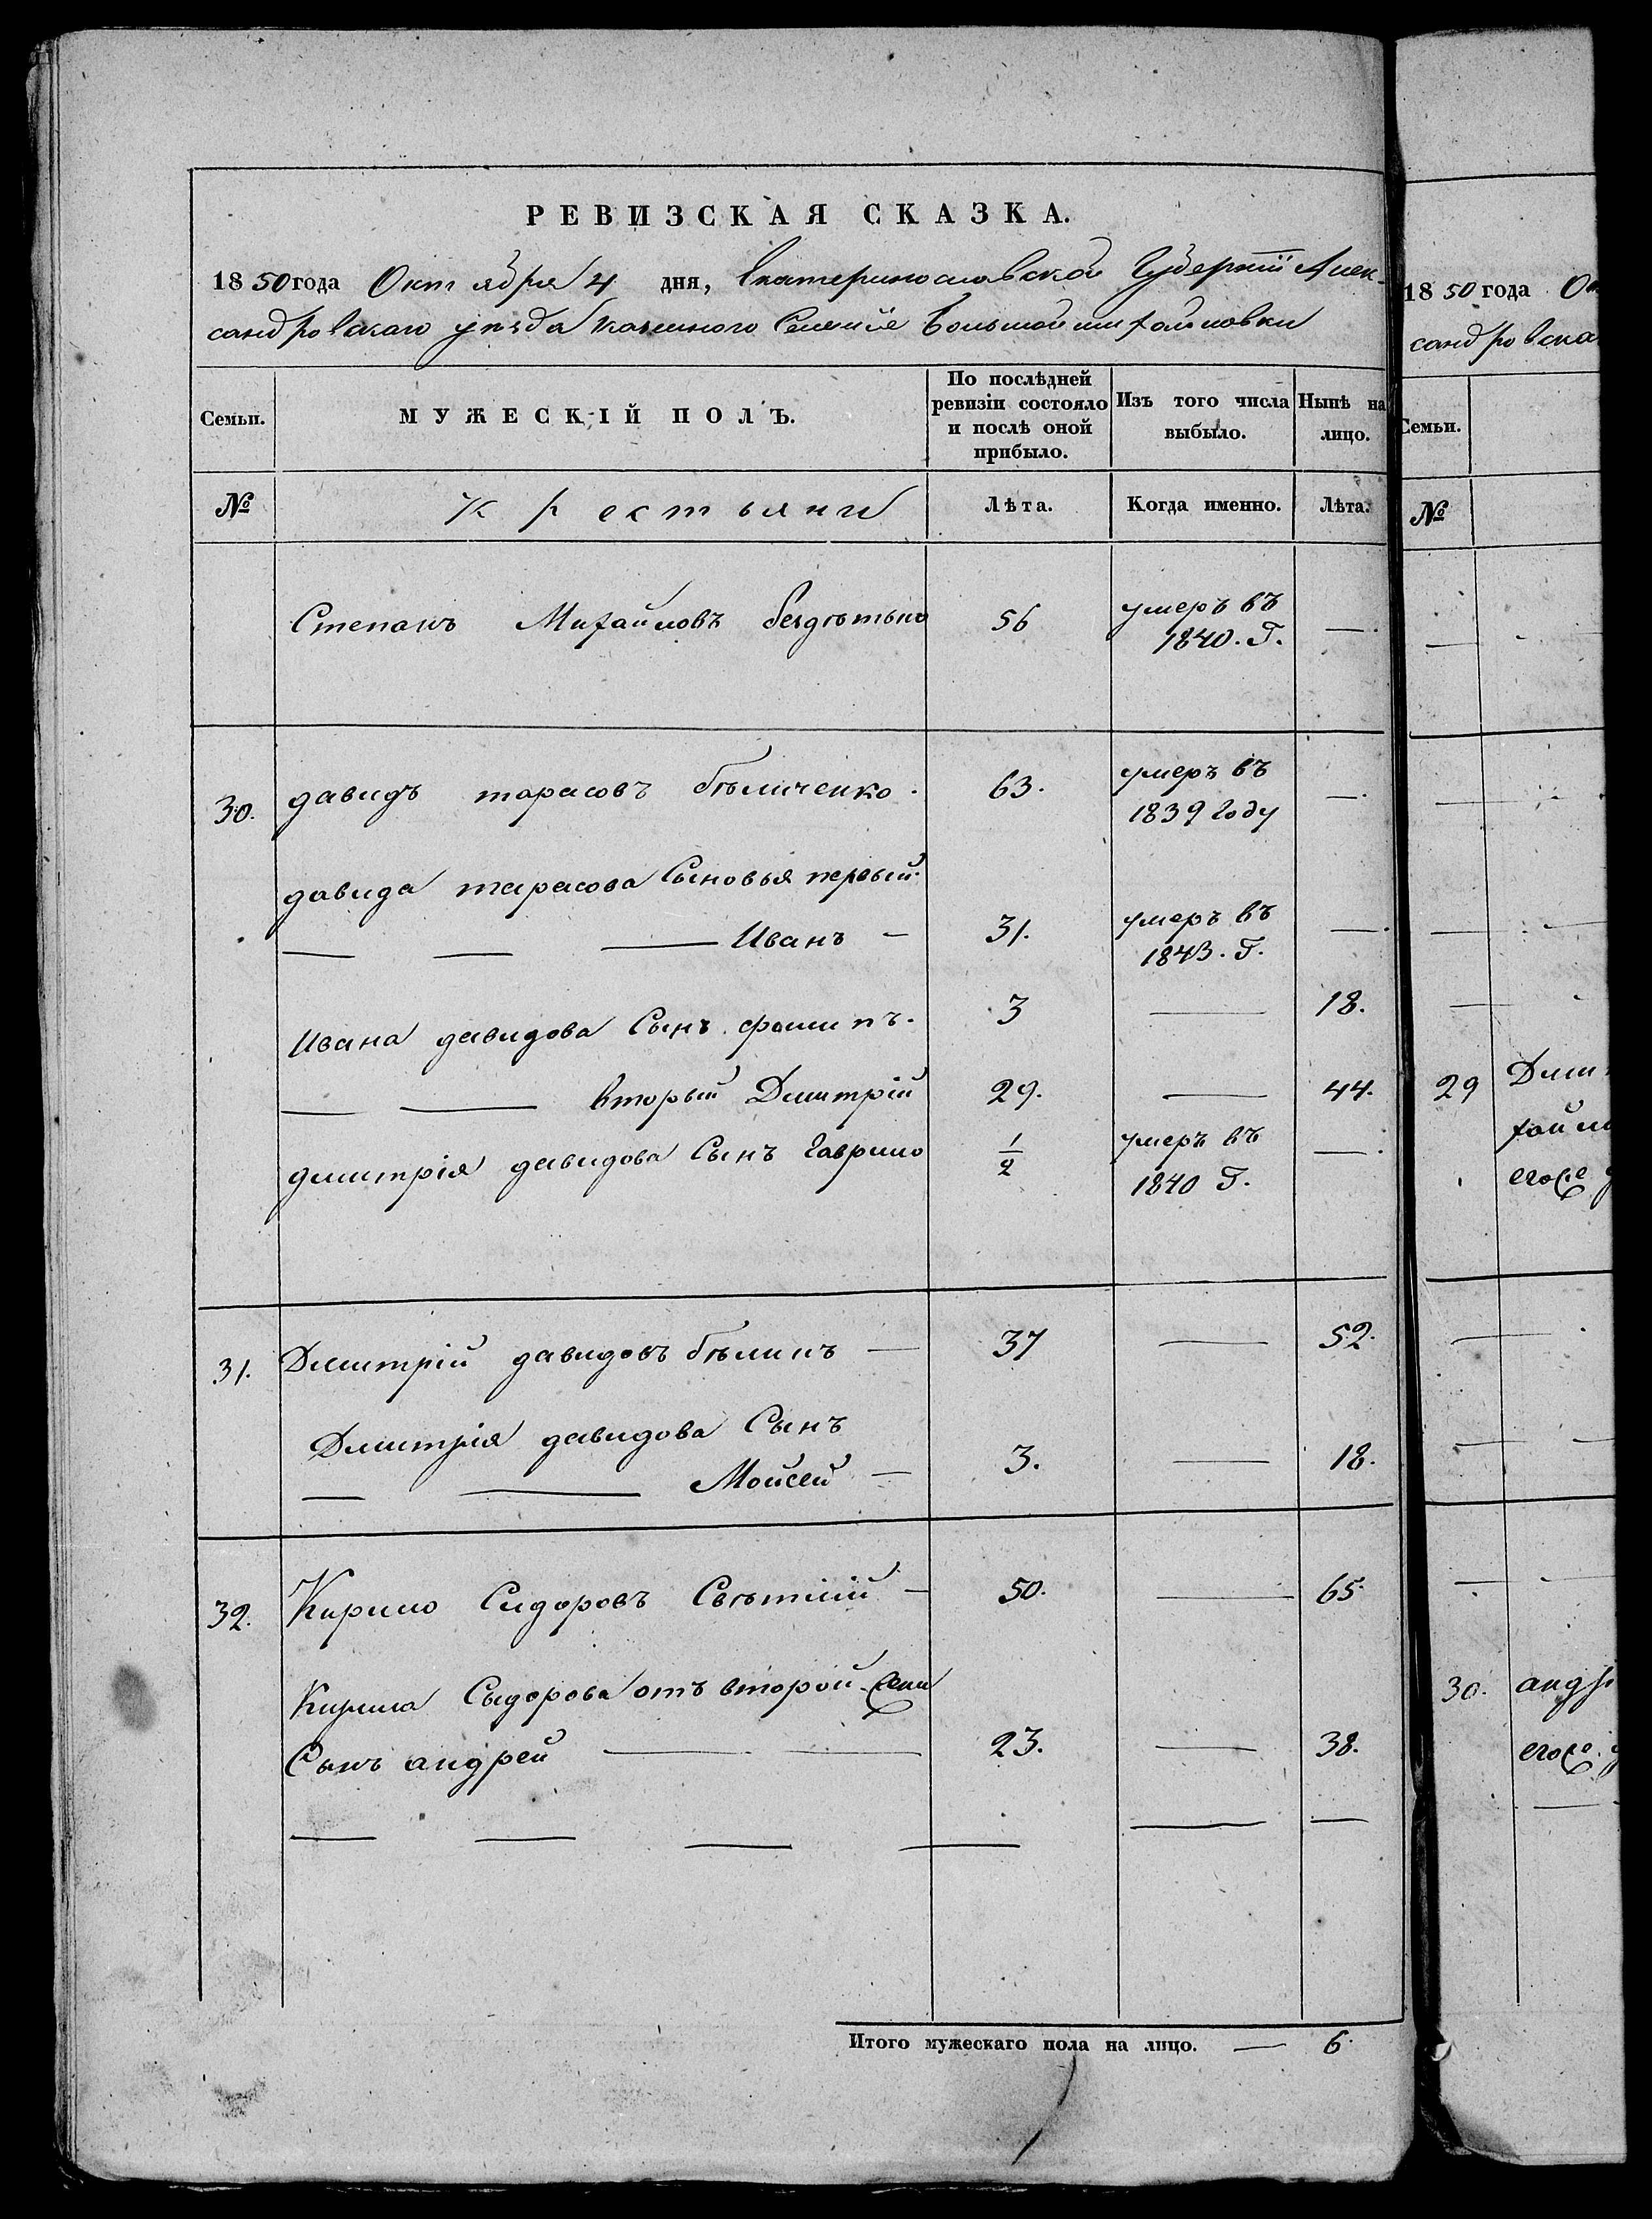 РЕВИЗСКАЯ СКАЗКА.
1850 года Октября 4 дня, Екатеринославской Губерніи Алек-
сандровскаго уѣзда казенного Селенія Большой михайловки
Семьи.
МУЖЕСКІЙ ПОЛЪ.
По послѣдней ревизіи состояло и послѣ оной прибыло.
Изъ того числа выбыло.
Нынѣ на лицо.
№
Крестьяни
Лѣта.
Когда именно.
Лѣта.
Степанъ Михайловъ бездѣтько 56 умеръ въ 1840. Г. —
30. давидъ тарасовъ бѣличенко. 63. умеръ въ 1839 году —
давида тарасова Сыновья первый
— — — Иванъ — 31. умеръ въ 1843. Г. —
Ивана давидова Сынъ филипъ. 3 — 18.
— — вторый Дмитрій 29. — 44.
дмитрія давидова Сынъ Гаврило 1/2 умеръ въ 1840 Г. —
31. Дмитрій давидовъ бѣликъ — 37 — 52.
Дмитрія давидова Сынъ
— — Мойсей — 3. — 18.
32. Кирило Сидоровъ Свѣтлій — 50. — 65.
Кирила Сыдорова отъ второй жены
Сынъ андрей — — 23. — 38.
Итого мужескаго пола на лицо. — 6.
1850 года
сандровска
Семьи.
№
29
30.